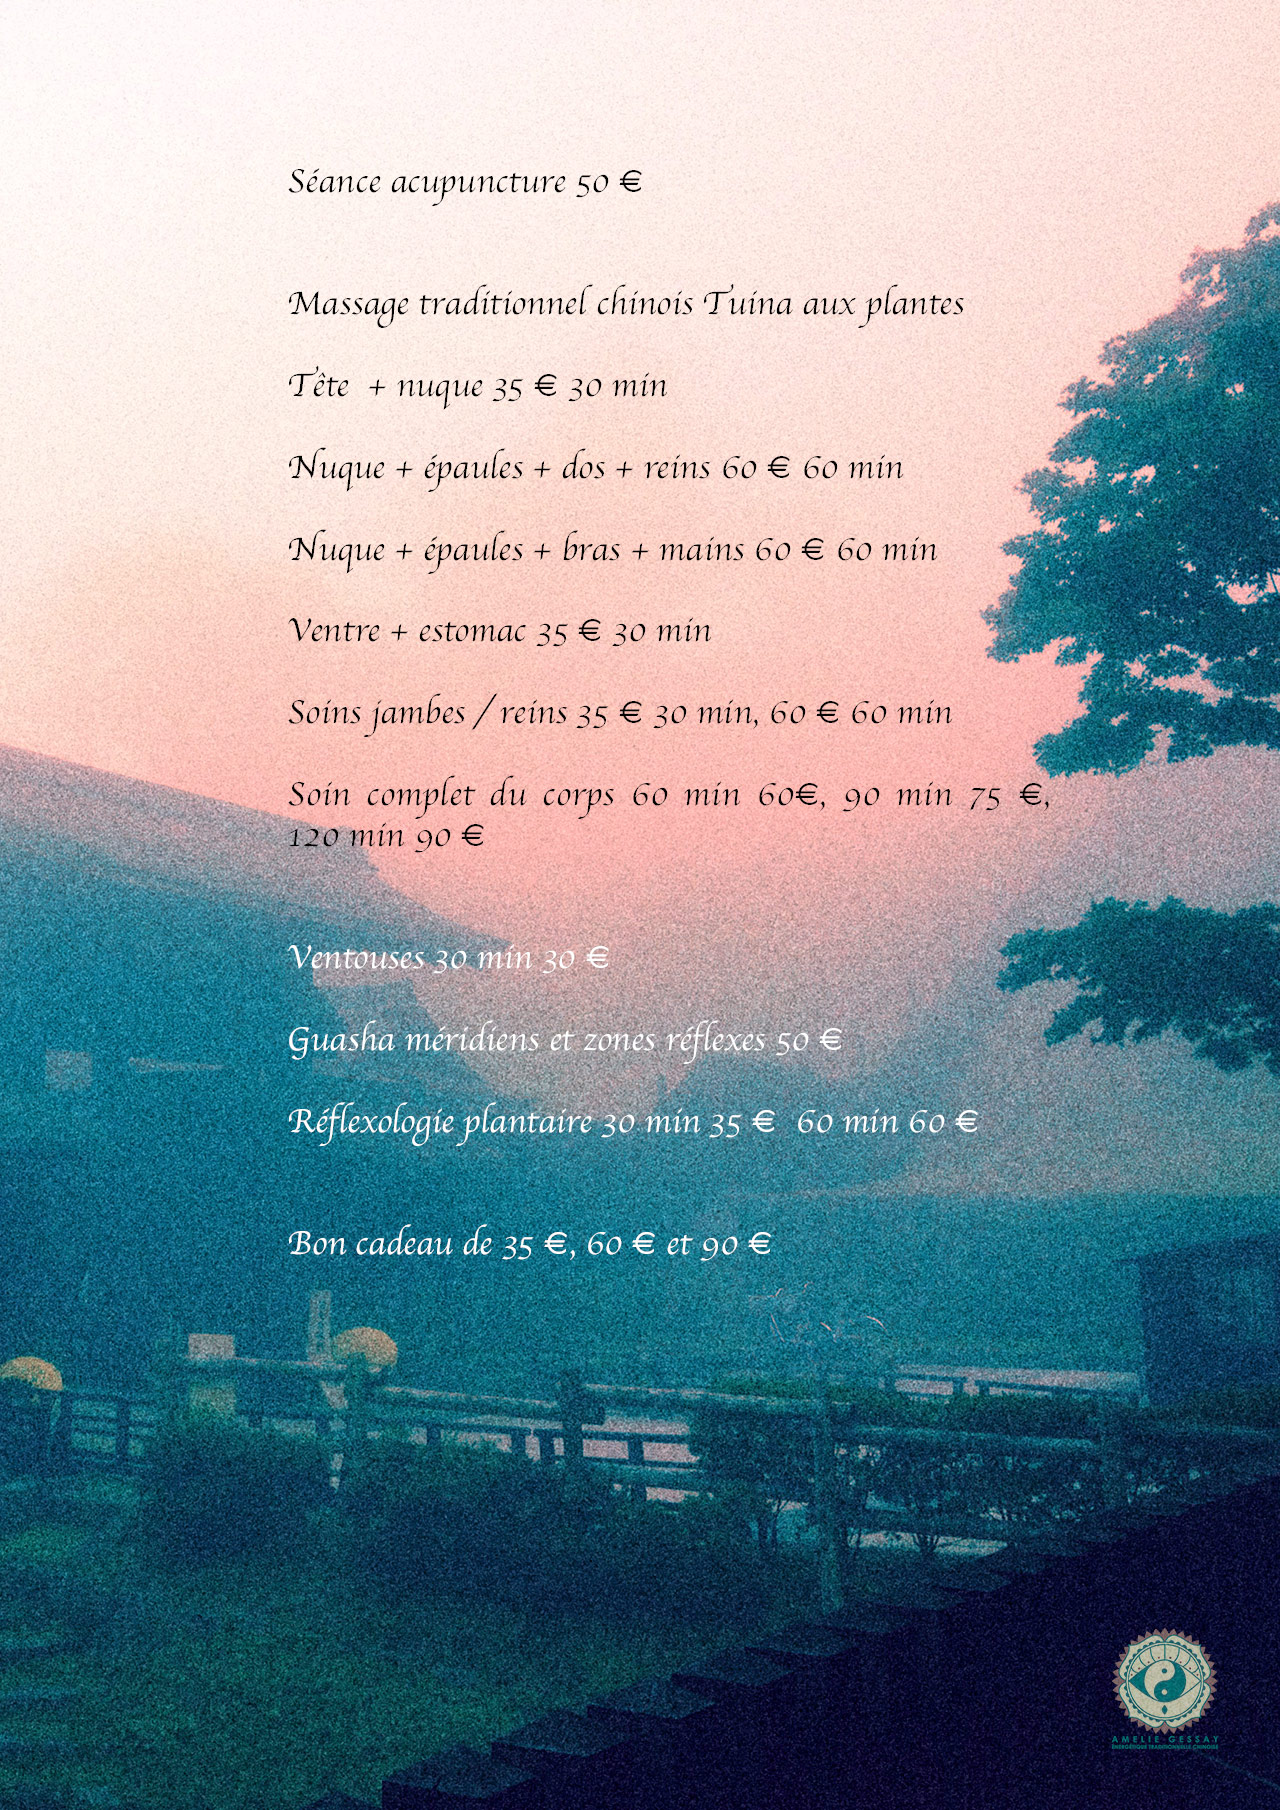 Séance acupuncture 50 €
Massage traditionnel chinois Tuina aux plantes
Tête + nuque 35 € 30 min
Nuque + épaules + dos + reins 60 € 60 min
Nuque + épaules + bras + mains 60 € 60 min
Ventre + estomac 35 € 30 min
Soins jambes / reins 35 € 30 min, 60 € 60 min
Soin complet du corps 60 min 60€, 90 min 75 €,
120 min 90 €
Ventouses 30 min 30 €
Guasha méridiens et zones réflexes 50 €
Réflexologie plantaire 30 min 35 € 60 min 60 €
Bon cadeau de 35 €, 60 € et 90 €
AMELIE GESSAY
ÉNERGÉTIQUE TRADITIONNELLE CHINOISE